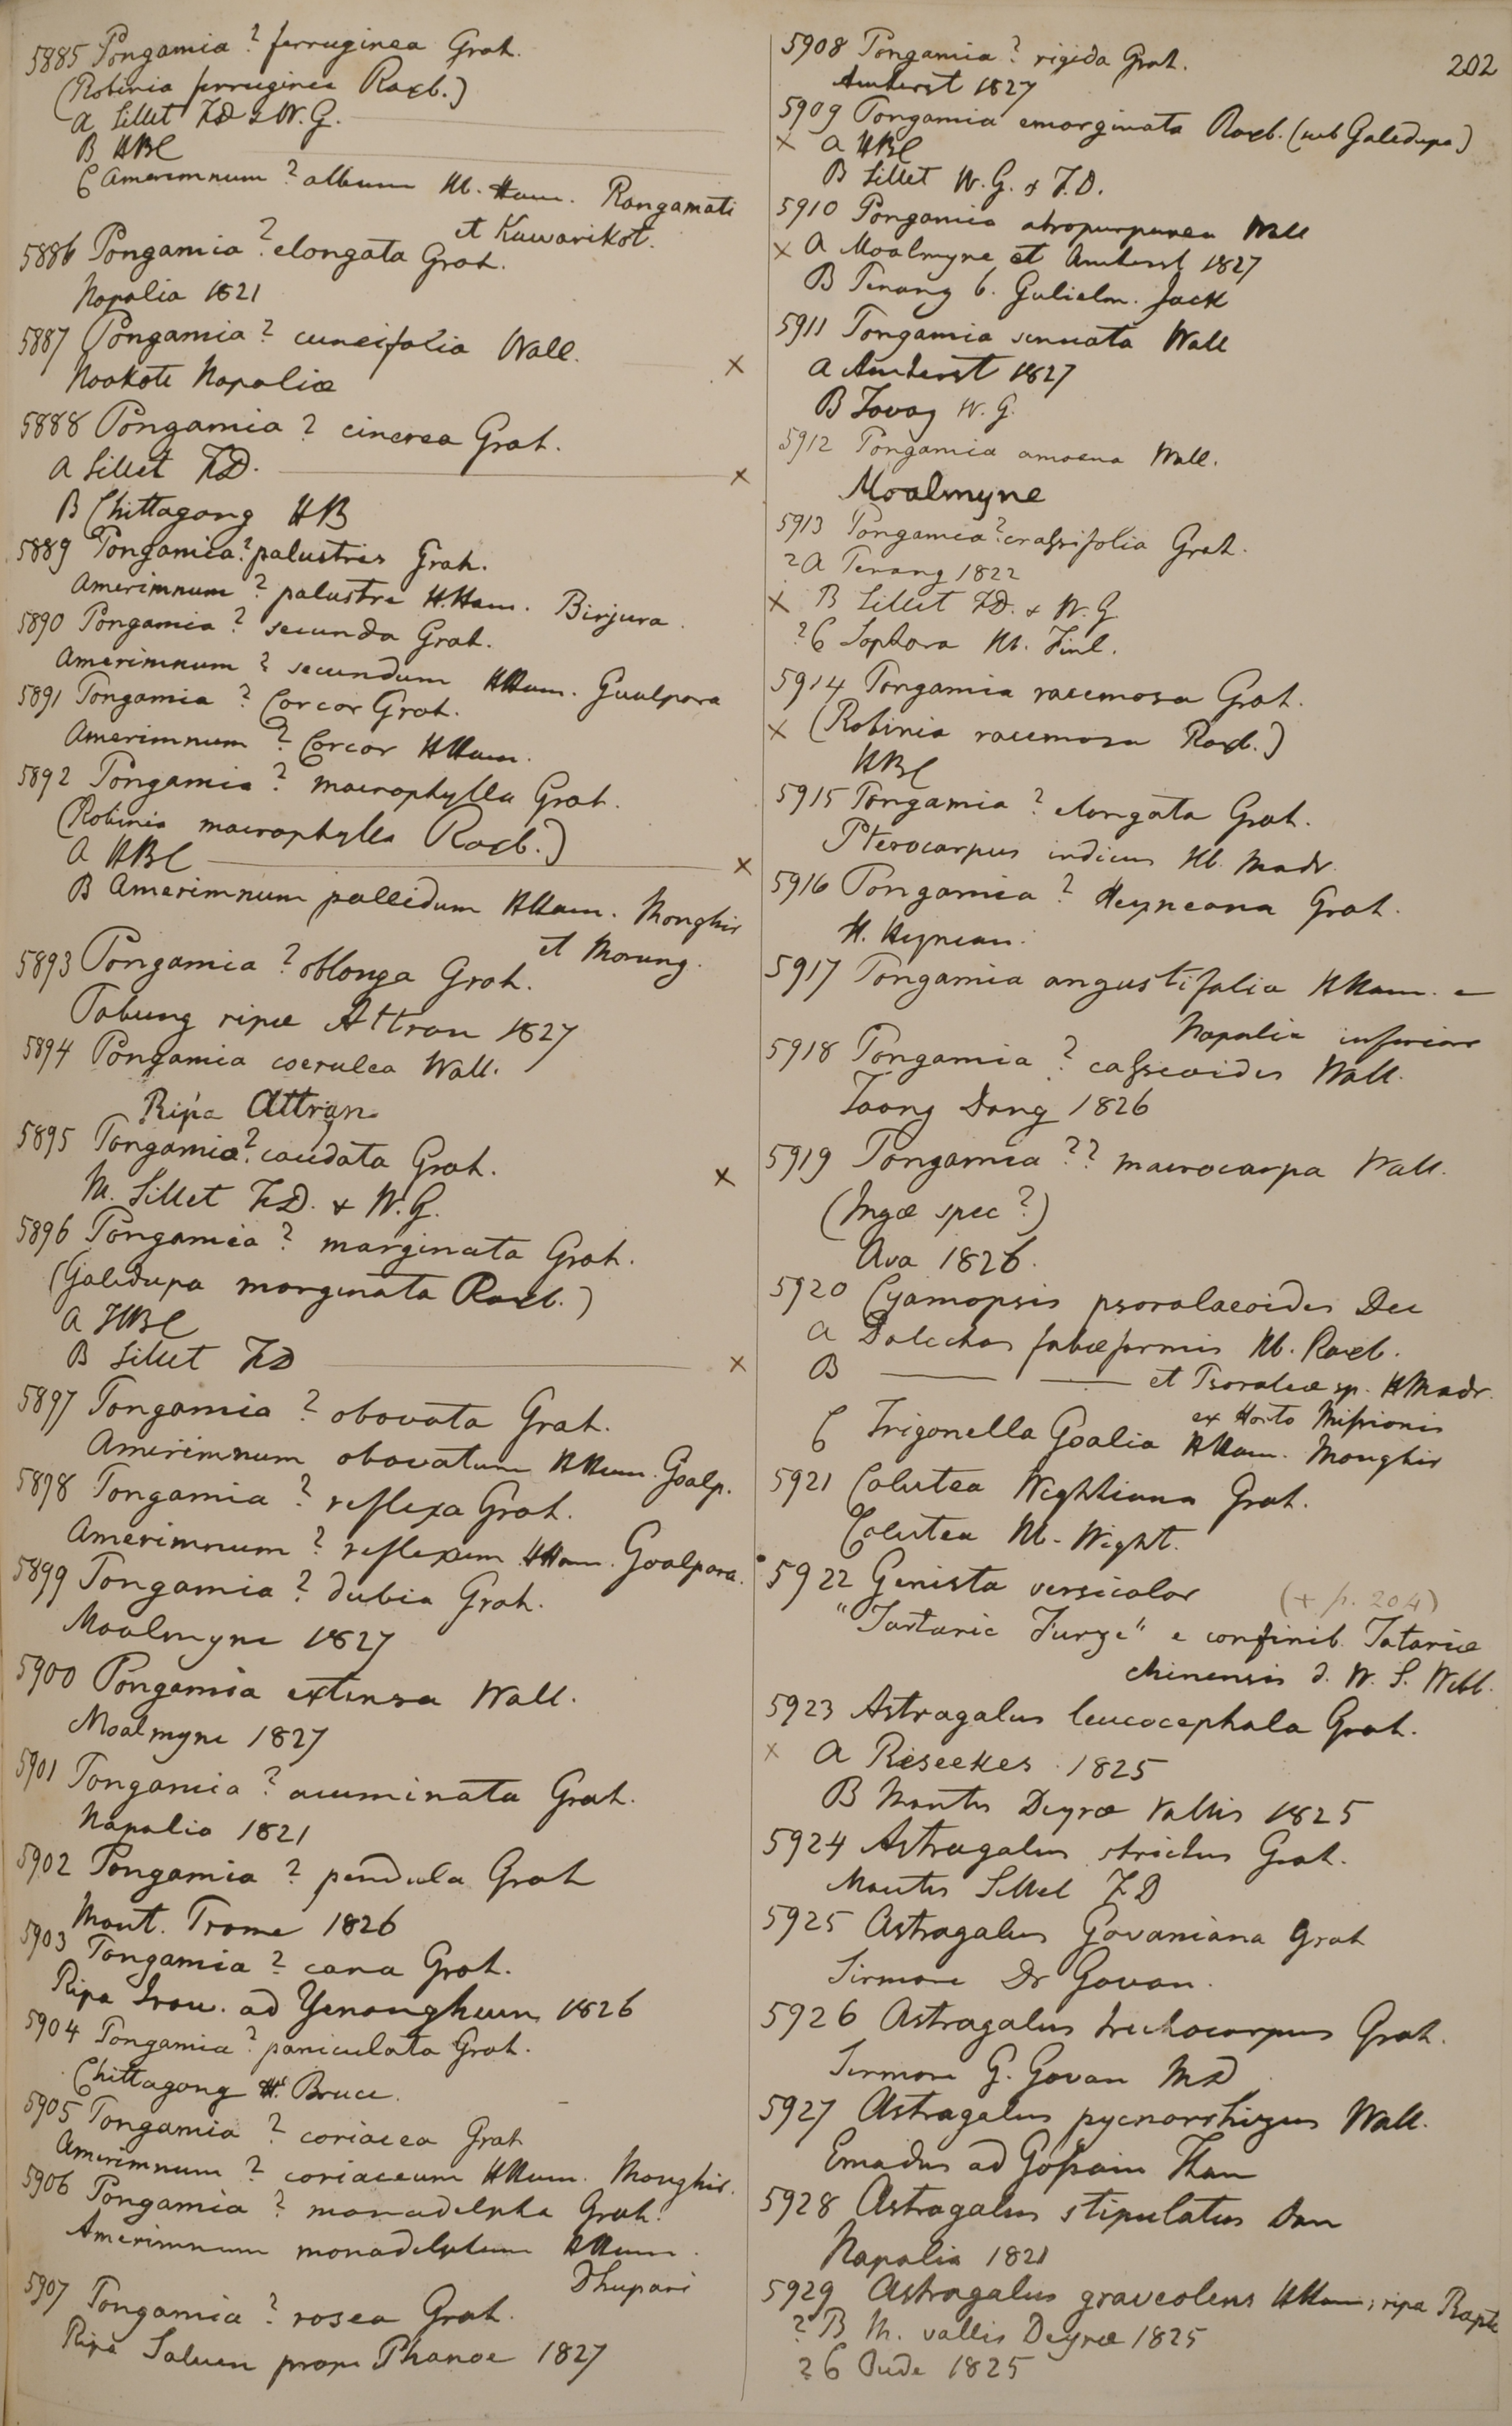 5885 Pongamia ? ferruginea Grah.
(Robinia ferruginea Roxb.)
A Sillet F.D & W.G.
B HBC
C Amerimnum ? album Hb. Ham. Rangamati
et Kuwarikot.
5886 Pongamia ? elongata Grah.
Napalia 1821
5887 Pongamia ? cuneifolia Wall.
Noakote Napaliæ
5888 Pongamia ? cinerea Grah.
A Sillet F.D.
B Chittagong HB
5889 Pongamia ? palustris Grah.
Amerimnum ? palustre H.Ham. Birjura.
5890 Pongamia ? secunda Grah.
Amerimnum ? secundum HHam. Gualpara
5891 Pongamia ? Corcor Grah.
Amerimnum ? Corcor HHam.
5892 Pongamia ? macrophylla Grah.
(Robinia macrophylla Roxb.)
A HBC
B Amerimnum pallidum HHam. Monghir
et Morung.
5893 Pongamia ? oblonga Grah.
Tabung ripæ Attran 1827
5894 Pongamia coerulea Wall.
Ripa Attran
5895 Pongamia ? caudata Grah.
M. Sillet F.D. & W.G.
5896 Pongamia ? marginata Grah.
(Galedupa marginata Roxb.)
A HBC
B Sillet FD
5897 Pongamia ? obovata Grah.
Amerimnum obovatum HHam. Goalp.
5898 Pongamia ? reflexa Grah.
Amerimnum ? reflexum HHam. Goalpara.
5899 Pongamia ? dubia Grah.
Moalmyne 1827
5900 Pongamia extensa Wall.
Moalmyne 1827
5901 Pongamia ? acuminata Grah.
Napalia 1821
5902 Pongamia ? pendula Grah
Mont. Prome 1826
5903 Pongamia ? cana Grah.
Ripa Irau. ad Yenangheun 1826
5904 Pongamia ? paniculata Grah.
Chittagong Hb. Bruce.
5905 Pongamia ? coriacea Grah
Amerimnum ? coriaceum HHam. Monghir.
5906 Pongamia ? monadelpha Grah.
Amerimnum monadelphum HHam.
Dhupari
5907 Pongamia ? rosea Grah.
Ripa Saluen prope Phanoe 1827
202
5908 Pongamia ? rigida Grah.
Amherst 1827
5909 Pongamia emarginata Roxb. (sub Galedupa)
x A HBC
B Sillet W.G. & F.D.
5910 Pongamia atropurpurea Wall
x A Moalmyne et Amherst 1827
B Penang b. Gulielm. Jack
5911 Pongamia sinuata Wall
A Amherst 1827
B Tavoy W.G.
5912 Pongamia amoena Wall.
Moalmyne
5913 Pongamia ? crassifolia Grah.
? A Penang 1822
x B Sillet F.D. & W.G
? C Sophora Hb. Finl.
5914 Pongamia racemosa Grah.
x (Robinia racemosa Roxb.)
HBC
5915 Pongamia ? elongata Grah.
Pterocarpus indicus Hb. Madr.
5916 Pongamia ? Heyneana Grah.
H. Heynean.
5917 Pongamia angustifolia HHam. e
Napalia inferiore
5918 Pongamia ? cassioides Wall.
Taong Dong 1826
5919 Pongamia ?? macrocarpa Wall.
(Ingæ spec ?)
Ava 1826.
5920 Cyamopsis psoralaeoides Dec
A Dolichos fabæformis Hb. Roxb.
B —— —— et Psoraleæ sp. HMadr.
ex Horto Missionis
C Trigonella Goalia HHam. Monghir
5921 Colutea Wightiana Grah.
Colutea Hb. Wight.
5922 Genista versicolor (+ p. 204)
"Tartaric Furze" e confinib. Tatariæ
chinensis d. W. S. Webb.
5923 Astragalus leucocephala Grah.
x A Riseekes 1825
B Montes Deyræ vallis 1825
5924 Astragalus strictus Grah.
Montes Sillet F D
5925 Astragalus Govaniana Grah
Sirmore Dr Govan.
5926 Astragalus trichocarpus Grah.
Sirmore G. Govan MD
5927 Astragalus pycnorhizus Wall.
Emodus ad Gossain Than
5928 Astragalus stipulatus Don
Napalia 1821
5929 Astragalus graveolens HHam; ripa Rapti
? B M. vallis Deyræ 1825
? C Oude 1825